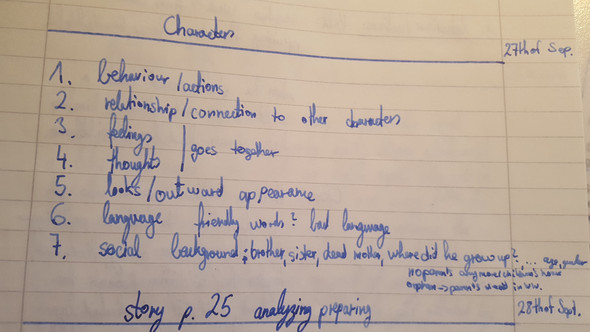 Characters
27th of Sep.
1. behaviour/actions
2. relationship/connection to other characters
3. feelings
4. thoughts | goes together
5. looks/outward appearance
6. language friendly words? bad language
7. social background: brother, sister, dead mother, where did he grow up?, ... age, gender
no parents anymore/children's home
orphan → parents in
story p. 25 analyzing preparing
28th of Sept.